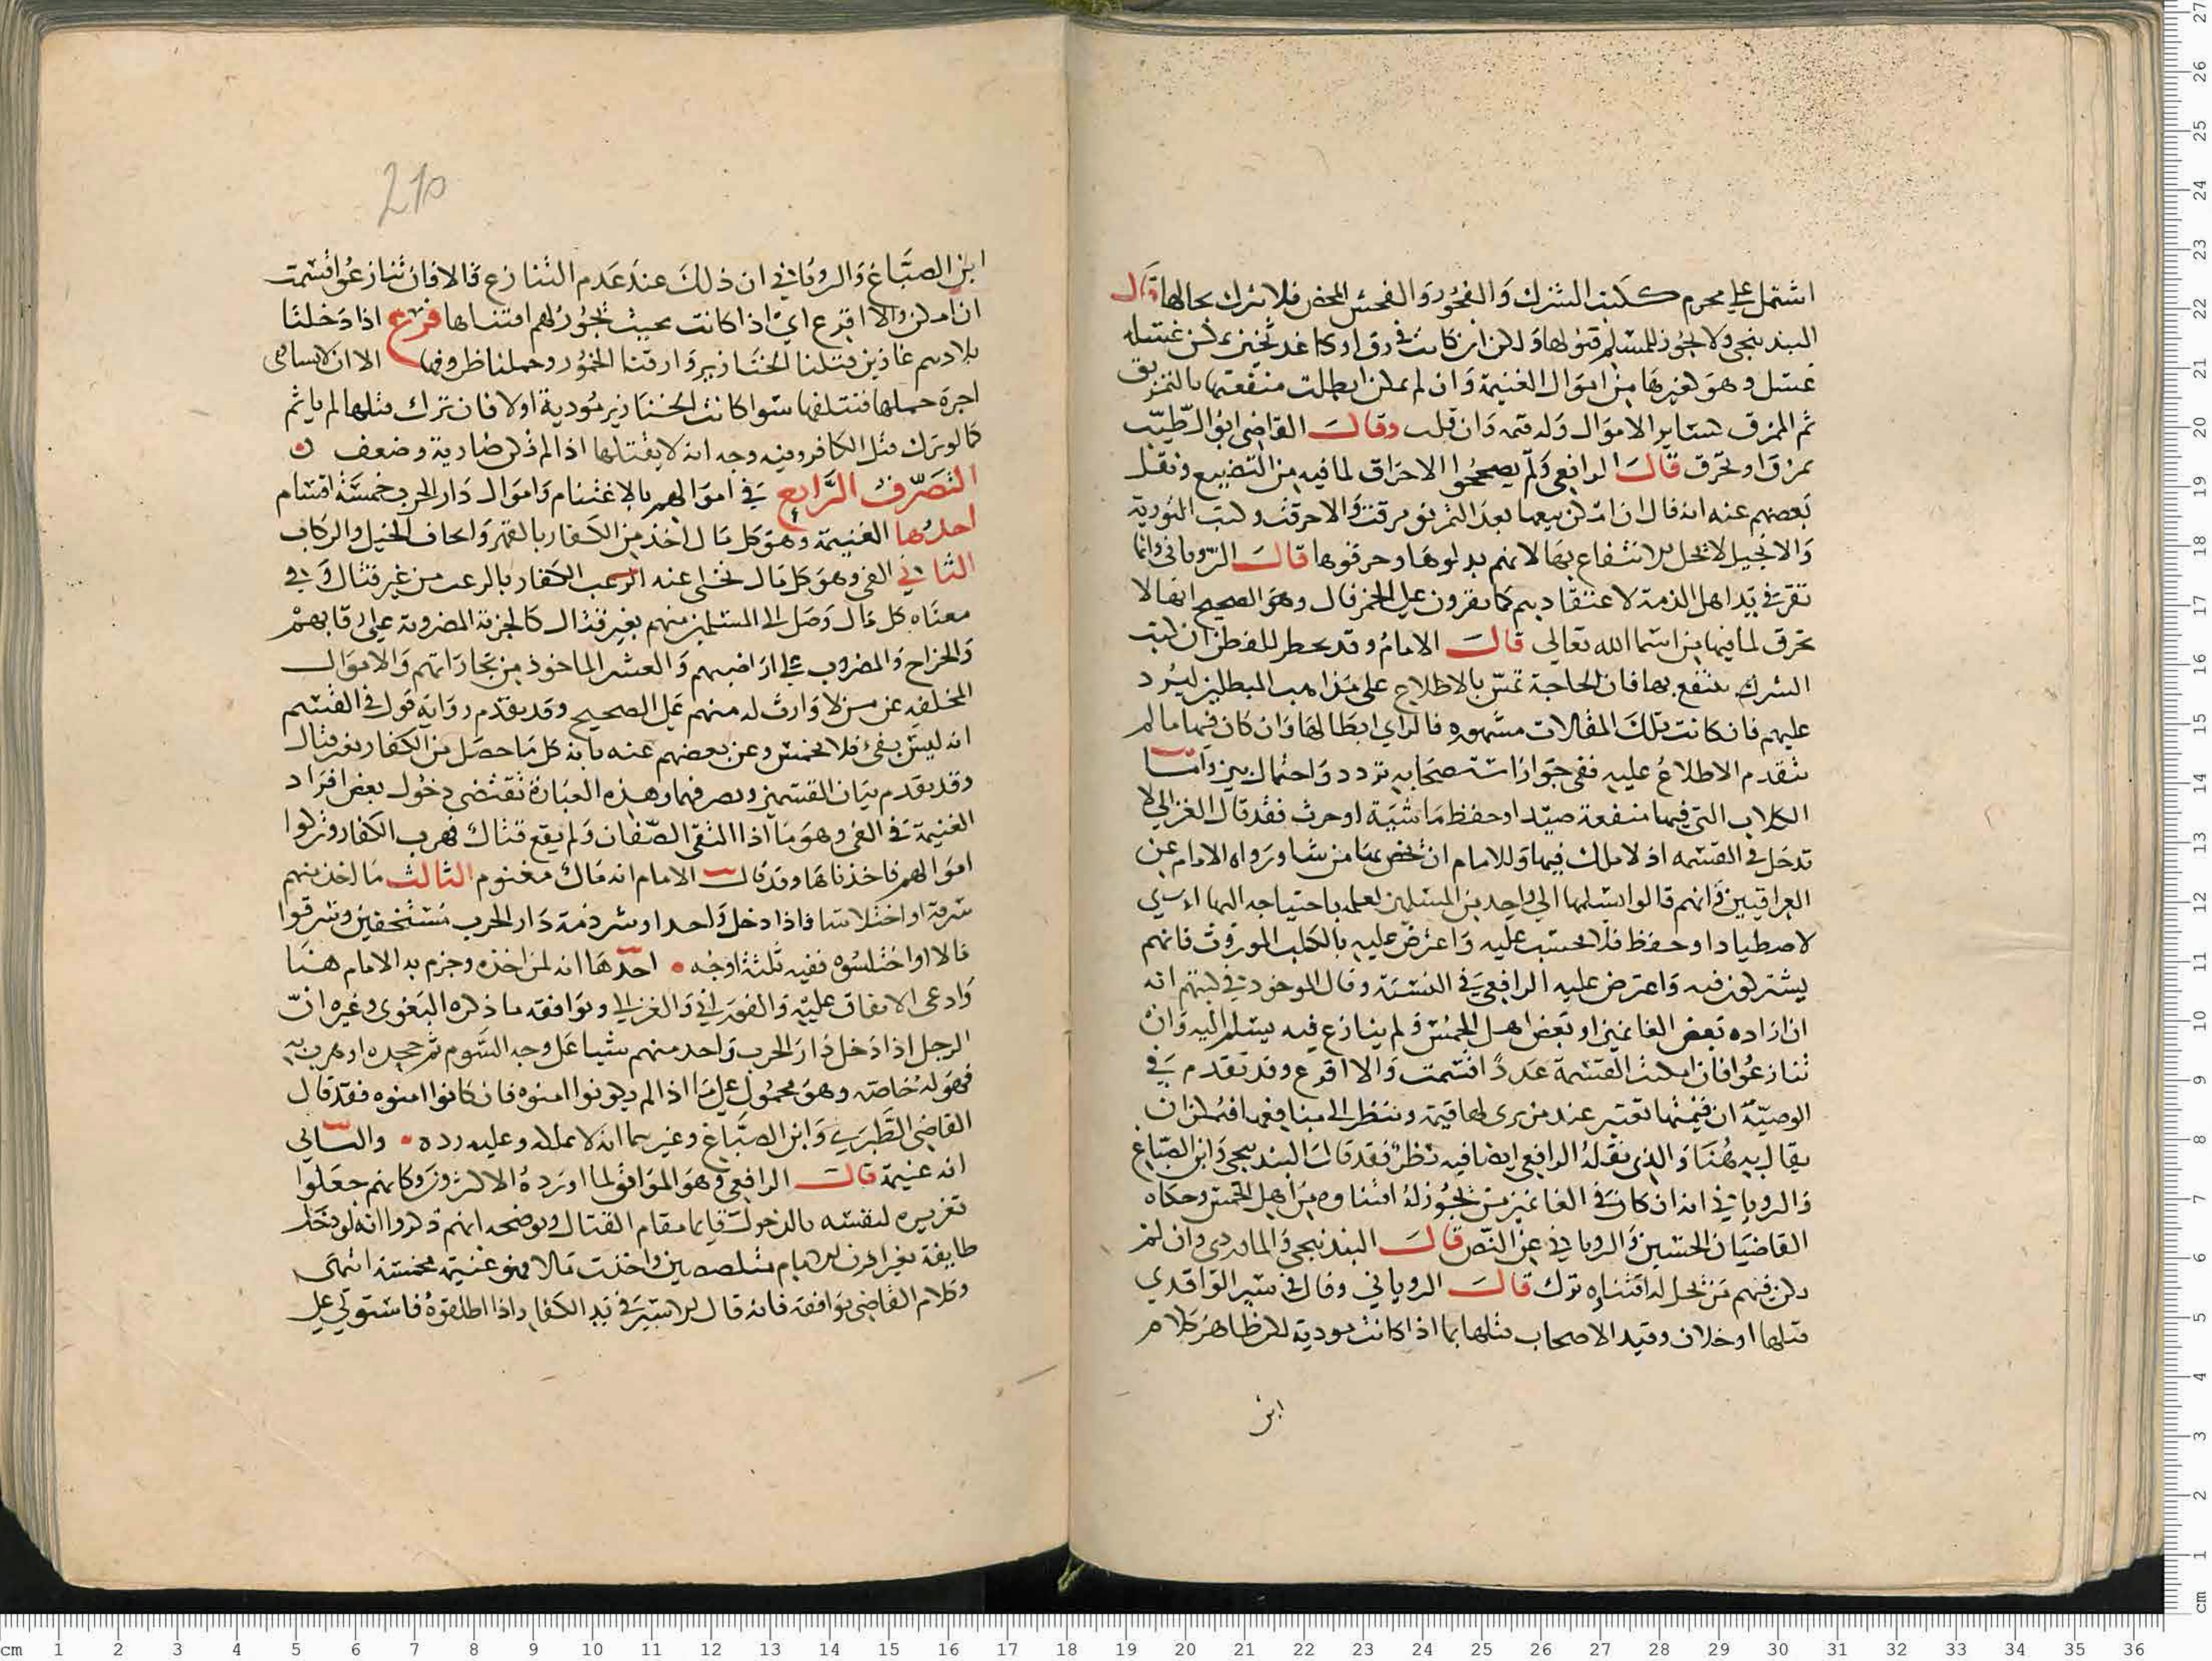 اشتمل على محرم ككتب الشرك والفجور والفحش المحض فلا يترك بحالها قال
البندنيجي ولا يجوز للمسلم قنوها ولكن ان كانت في رق او كاغد ثخين يمكن غسله
غسل وهو كغيرها من اموال الغنيمة وان لم يمكن ابطلت منفعتها بالتمزيق
ثم الممزق كساير الاموال وله قيمة وان قلت وقال القاضي ابو الطيب
تمزق او تحرق قال الرافعي ولم يصححوا الاحراق لما فيه من التضييع ونقل
بعضهم عنه انه قال ان امكن بيعها بعد التمزيق مزقت والا حرقت وكتب التورية
والانجيل لا يحل الانتفاع بها لانهم بدلوها وحرفوها قال الروياني وانما
تقر في يد اهل الذمة لاعتقادهم كما يقرون على الخمر قال وهو الصحيح انها لا
تحرق لما فيها من اسما الله تعالى قال الامام وقد يخطر للفطن ان كتب
الشرك ينتفع بها فان الحاجة تمس بالاطلاع على مذاهب المبطلين ليرد
عليهم فان كانت تلك المقالات مشهورة فالراي ابطالها وان كان فيها ما لم
يتقدم الاطلاع عليه ففي جواز استصحابه تردد واحتمال بين واما
الكلاب التي فيها منفعة صيد او حفظ ماشية او حرث فقد قال الغزالي لا
تدخل في القسمة اذ لا ملك فيها وللامام ان يخص بها من شا ورواه الامام عن
العراقيين فانهم قالوا يسلمها الى واحد من المسلمين لعلمه باحتياجه اليها
لاصطياد او حفظ فلا يحسب عليه واعترض عليه بالكلب الموروث فانهم
يشتركون فيه واعترض عليه الرافعي في النسبة وقال الموجود في كتبهم انه
ان اراده بعض الغانمين او بعض اهل الخمس ولم ينازع فيه يسلم اليه وان
تنازعوا فان امكنت القسمة عددا اقتسمت والا اقرع وقد تقدم في
الوصية ان قيمتها تعتبر عند من يرى لها قيمة وينظر الى منافعها فيمكن ان
يقال به هنا والذي نقله الرافعي ايضا فيه نظر فقد قال البندنيجي وابن الصباغ
والروياني انه ان كان في الغانمين من يجوز له اقتناوه من اهل الخمس وحكاه
القاضيان الحسين والروياني عن النص قال البندنيجي والماوردي وان لم
يكن فيهم من يحل له اقتناوه ترك قال الروياني وقال في سير الواقدي
قتلها او خلات وقيد الاصحاب قتلها بما اذا كانت موذية لكن ظاهر كلام
ابن
210
ابن الصباغ والروياني ان ذلك عند عدم التنازع قالا فان تنازعوا قسمت
ان امكن والا اقرع اي اذا كانت بحيث يجوز لهم اقتناها فرع اذا دخلنا
بلادهم غازين قتلنا الخنازير وارقنا الخمور وحملنا ظروفها الا ان لا يساوى
اجرة حملها فنتلفها سوا كانت الخنازير موذية اولا فان ترك قتلها لم ياثم
كما لو ترك قتل الكافر وفيه وجه انه لا يقتلها اذا لم تكن ضارية وضعف
التصرف الرابع في اموالهم بالاغتنام واموال دار الحرب خمسة اقسام
احدها الغنيمة وهو كل مال اخذ من الكفار بالقهر وايجاف الخيل والركاب
الثاني الفي وهو كل مال تخلى عنه الكفار بالرعب من غير قتال وفي
معناه كل مال وصل الى المسلمين منهم بغير قتال كالجزية المضروبة على رقابهم
والخراج والمضروب على اراضيهم والعشر الماخوذ من تجاراتهم والاموال
المخلفة عن من لا وارث له منهم على الصحيح وقد تقدم رواية قول في القسم
انه ليس بفي فلا يخمس وعن بعضهم عنه بانه كل ما حصل من الكفار بغير قتال
وقد تقدم بيان القسمين ومصرفهما وهذه العبارة تقتضي دخول بعض افراد
الغنيمة في الفي وهو ما اذا التقى الصفان ولم يقع قتال فهرب الكفار وتركوا
اموالهم فاخذناها وقد قال الامام انه مال مغنوم الثالث ما اخذ منهم
سرقة او اختلاسا فاذا دخل واحد او شرذمة دار الحرب مستخفين وسرقوا
مالا او اختلسوه ففيه ثلثة اوجه احدها انه لمن اخذه وجزم به الامام هنا
وادعى الاتفاق عليه والفوراني والغزالي ويوافقه ما ذكره البغوي وغيره ان
الرجل اذا دخل دار الحرب واحد منهم شيا على وجه السوم ثم جحده او هرب به
فهو له خاصة وهو محمول على ما اذا لم يكونوا امنوه فان كانوا امنوه فقد قال
القاضي الطبري وابن الصباغ وغيرهما انه لا يملكه وعليه رده والثاني
انه غنيمة قال الرافعي وهو الموافق لما اورده الاكثرون وكانهم جعلوا
تغريره لنفسه بالدخول قايما مقام القتال ويوضحه انهم ذكروا انه لو دخل
طايفة بغير اذن الامام متلصصين واخذت مالا فهو غنيمة مخمسة انتهى
وكلام القاضي يوافقه فانه قال الاسير في يد الكفار اذا اطلقوه فاستولى على